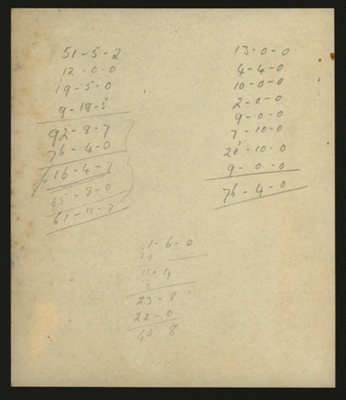 51-5-2
12-0-0
19-5-0
9-18-5
92-8-7
76-4-0
16-4-7
45-8-0
61-12-7
13-0-0
4-4-0
10-0-0
2-0-0
9-0-0
7-10-0
21-10-0
9-0-0
76-4-0
1-6-0
11-4
23-8
22-0
45 8